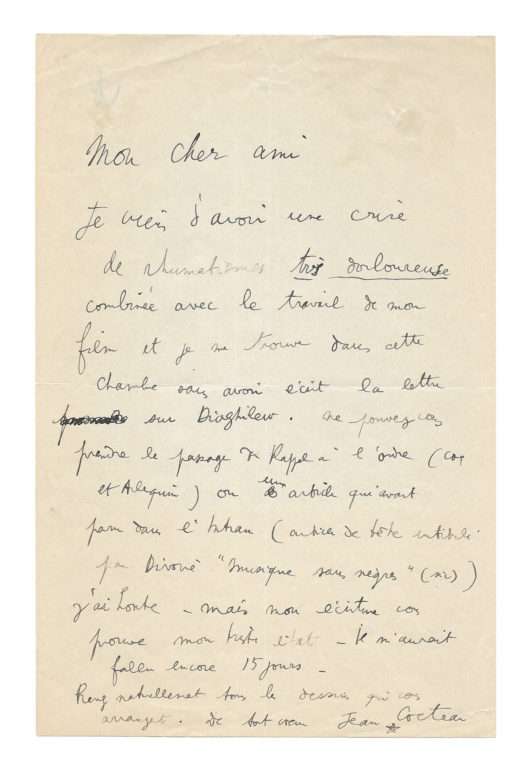 Mon cher ami
Je viens d'avoir une crise
de rhumatismes très douloureuse
combinée avec le travail de mon
film et je me trouve dans cette
chambre sans avoir écrit la lettre
sur Diaghilew. Ne pouvez vous
prendre le passage du Rappel à l'ordre (Coq
et Arlequin) ou un article qui avait
paru dans l'Intran (article de tête intitulé
par Divoire "Musique sans nègres" (sic))
j'ai honte - mais mon écriture vous
prouve mon triste état - Il m'aurait
fallu encore 15 jours -
naturellement tous les dessins qui vous
arrangent. De tout cœur Jean Cocteau